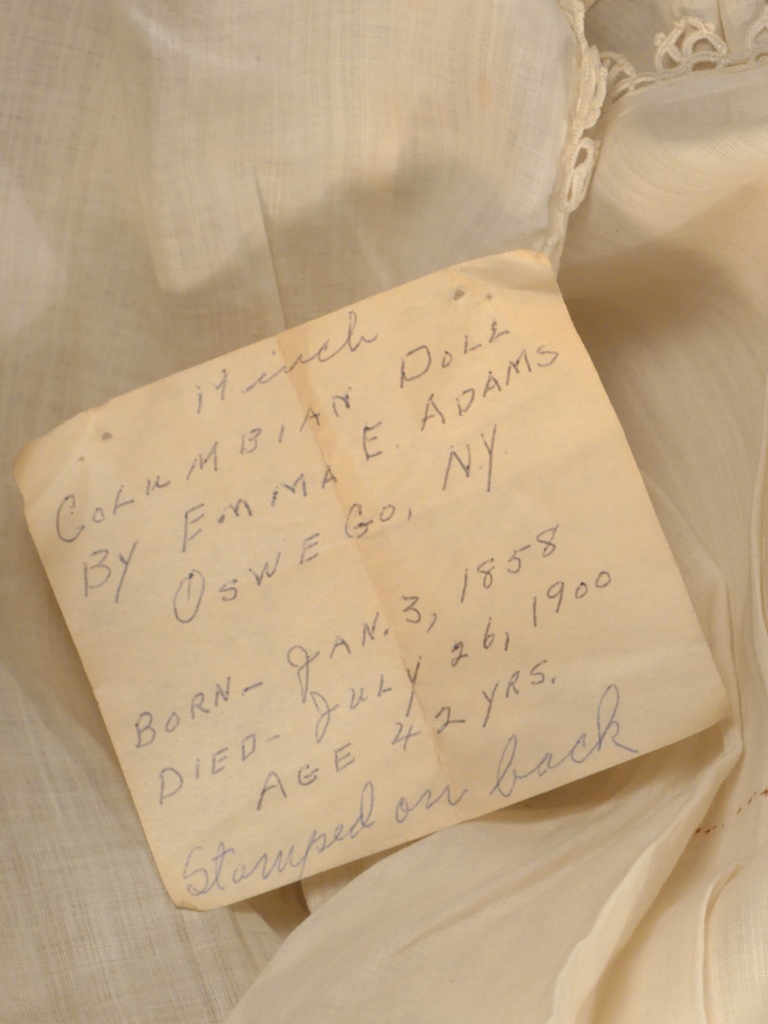 19 inch
COLUMBIAN DOLL
BY EMMA E. ADAMS
OSWEGO, NY.
BORN- JAN. 3, 1858
DIED- JULY 26, 1900
AGE 42 YRS.
Stamped on back